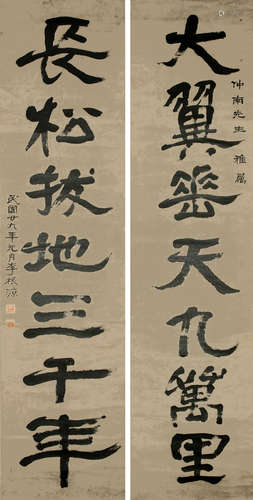 仲南先生雅屬
大翼垂天九萬里
長松拔地三千年
民國廿九年元月李根源